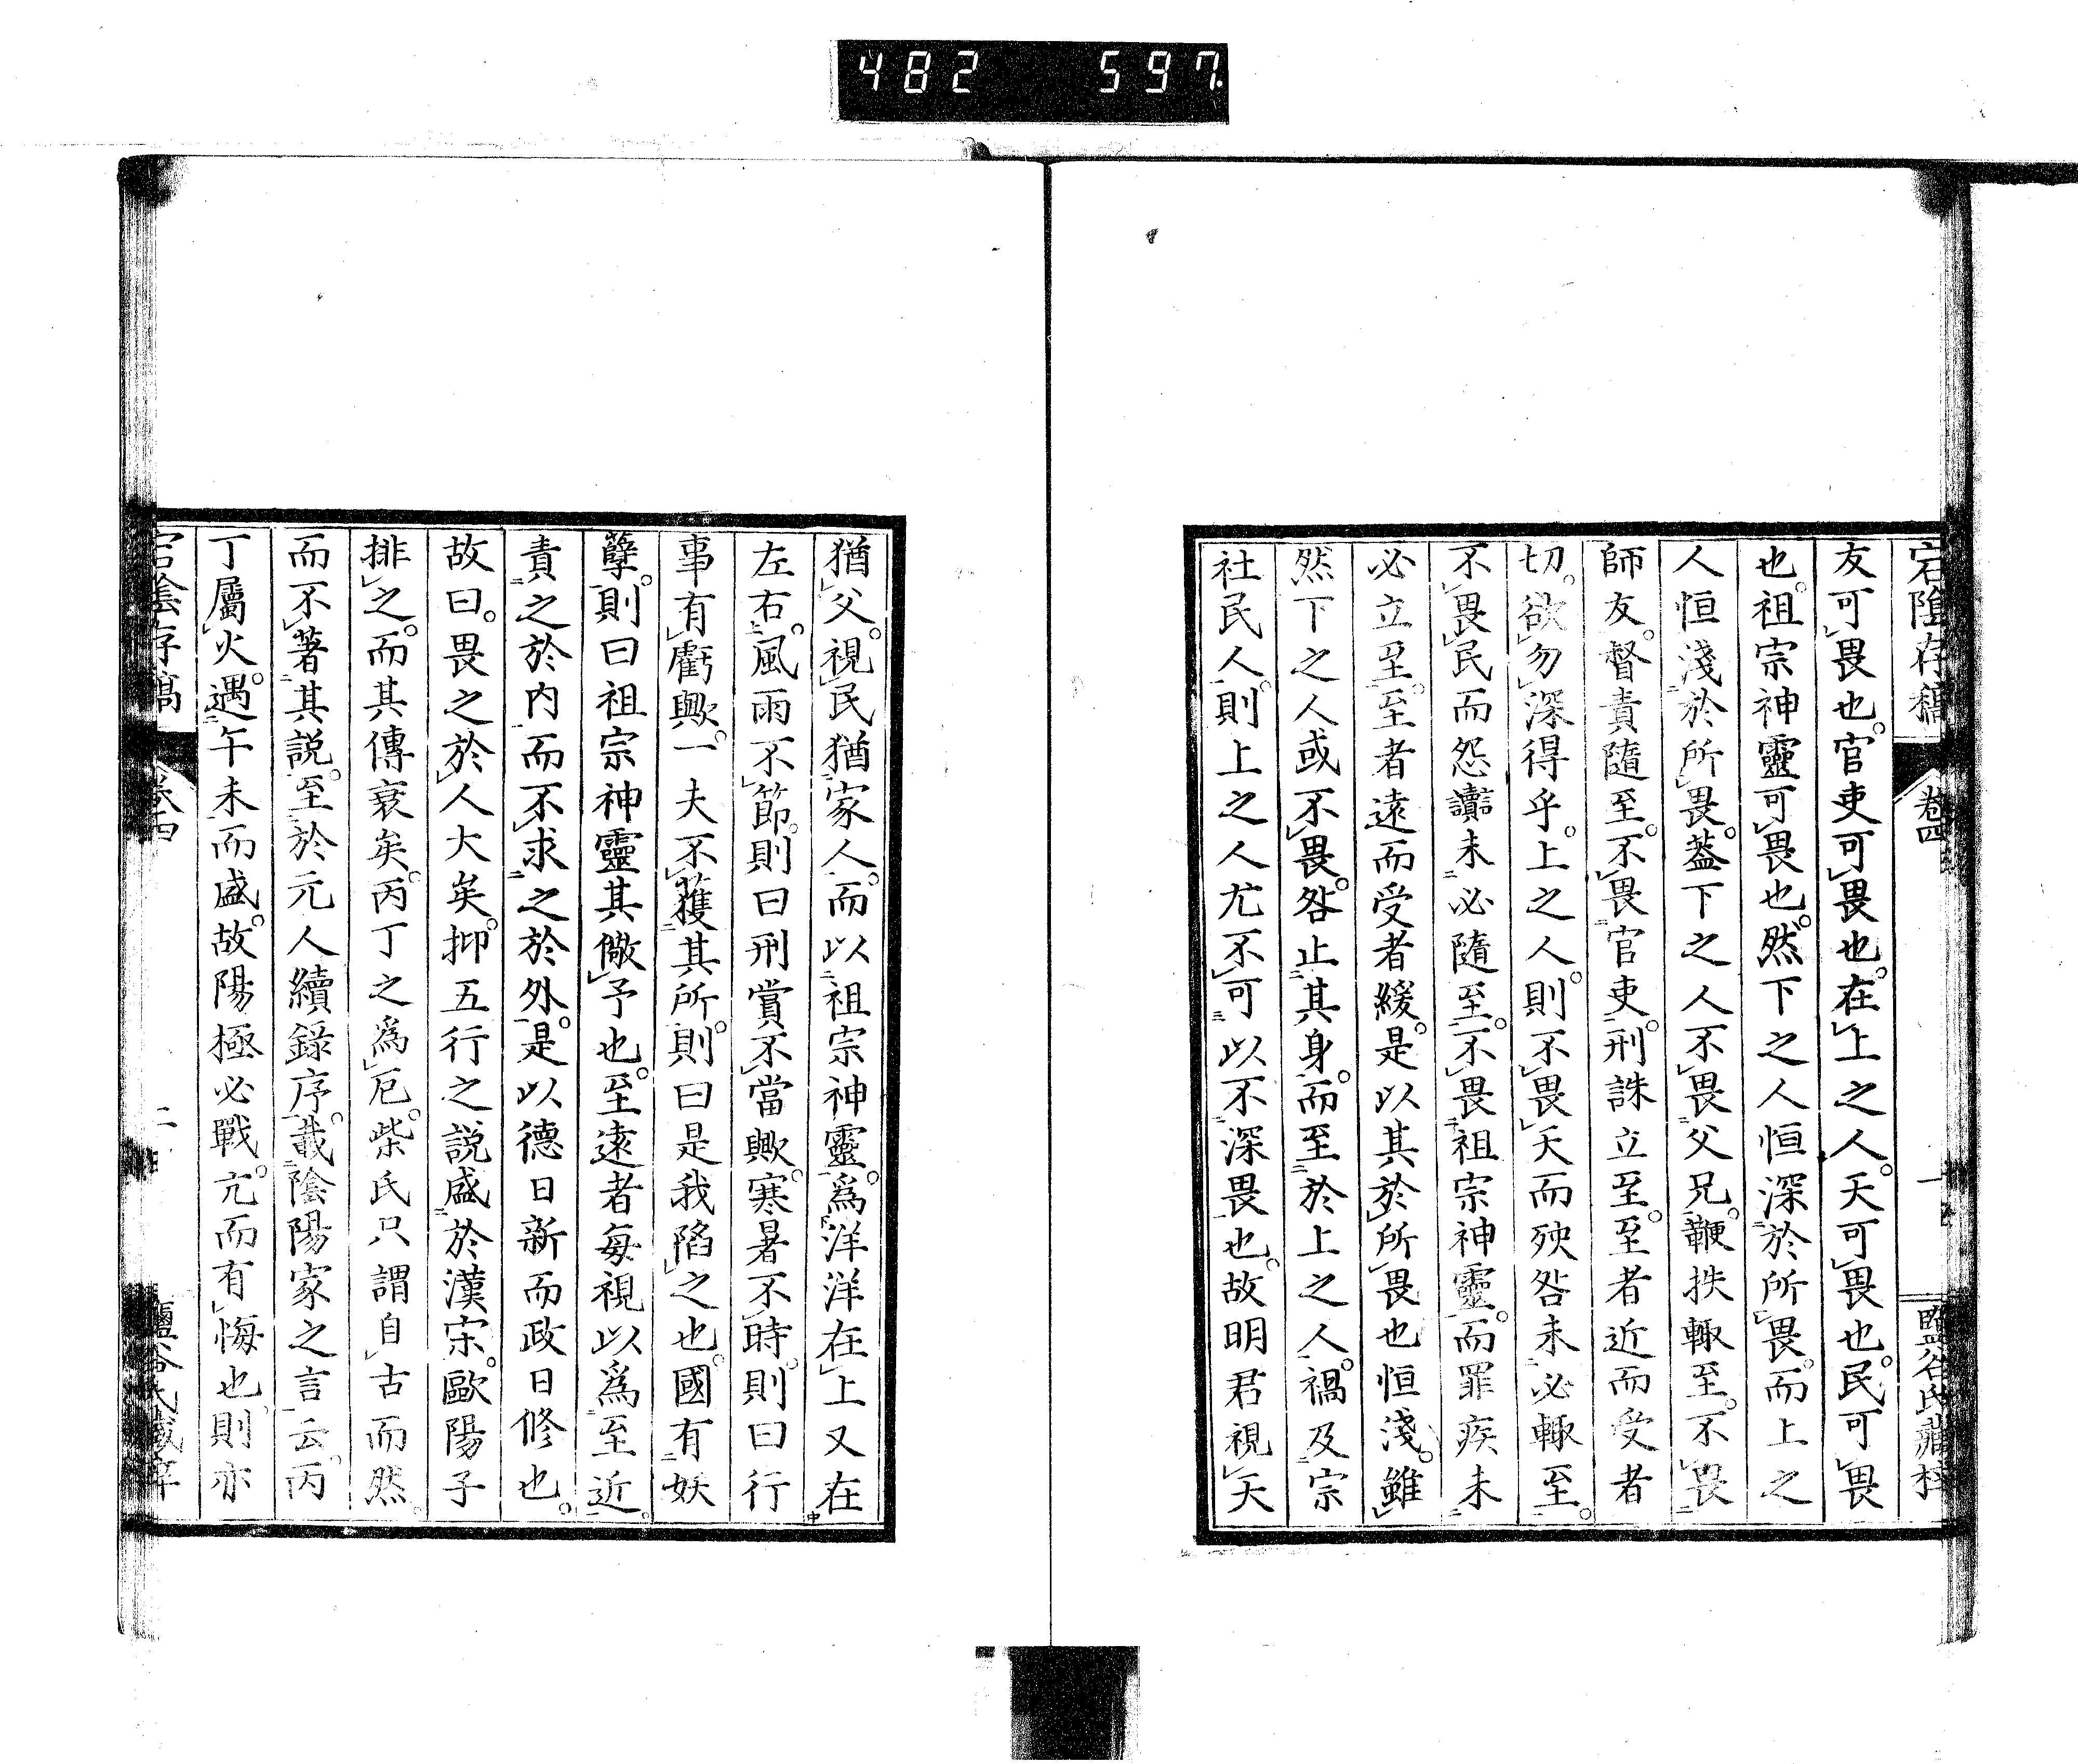 482 597.
宕陰存稿 卷四 一 鹽谷氏藏梓
友可畏也。官吏可畏也。在上之人。天可畏也。民可畏
也。祖宗神靈可畏也。然下之人恒深於所畏。而上之
人恒淺於所畏。蓋下之人不畏父兄。鞭抶輒至。不畏
師友。督責隨至。不畏官吏。刑誅立至。至者近而受者
切。欲勿深得乎。上之人則不畏天而殃咎未必輒至。
不畏民而怨讟未必隨至。不畏祖宗神靈。而罪疾未
必立至。至者遠而受者緩。是以其於所畏也恒淺。雖
然下之人或不畏。咎止其身。而至於上之人。禍及宗
社民人。則上之人尤不可以不深畏也。故明君視天
猶父。視民猶家人。而以祖宗神靈。爲洋洋在上又在
左右。風雨不節。則曰刑賞不當歟。寒暑不時。則曰行
事有虧歟。一夫不獲其所。則曰是我陷之也。國有妖
孽。則曰祖宗神靈其儆予也。至遠者每視以爲至近。
責之於内而不求之於外。是以德日新而政日修也。
故曰。畏之於人大矣。抑五行之說盛於漢宋。歐陽子
排之。而其傳衰矣。丙丁之爲厄。柴氏只謂自古而然。
而不著其說。至於元人續錄序。載陰陽家之言云。丙
丁屬火。遇午未而盛。故陽極必戰。亢而有悔也。則亦
宕陰存稿 卷四 二 鹽谷氏藏梓